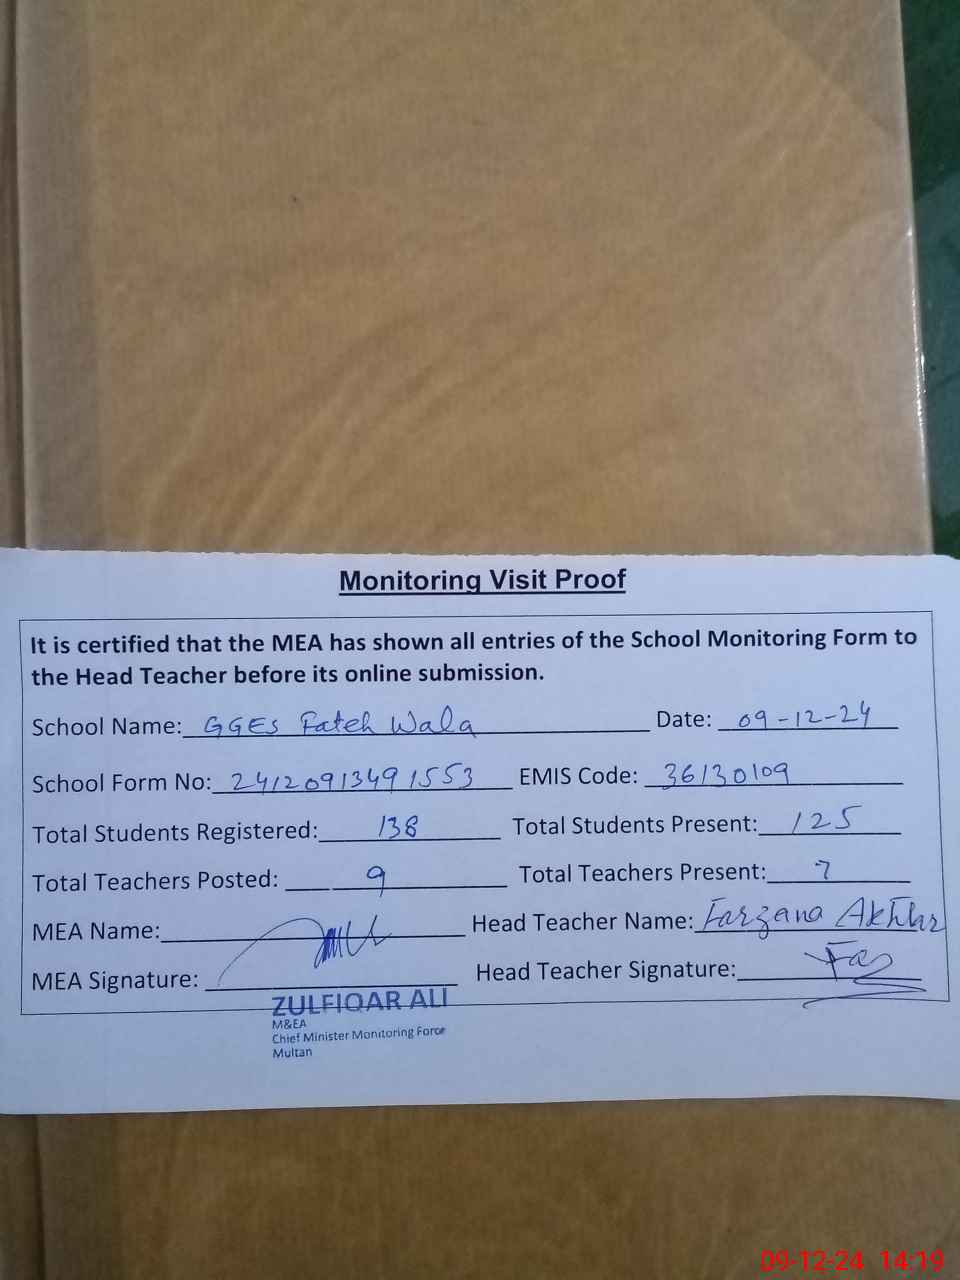 Monitoring Visit Proof
It is certified that the MEA has shown all entries of the School Monitoring Form to
the Head Teacher before its online submission.
School Name: GGES Fateh Wala Date: 09-12-24
School Form No: 24120913491553 EMIS Code: 36130109
Total Students Registered: 138 Total Students Present: 125
Total Teachers Posted: 9 Total Teachers Present: 7
MEA Name: Head Teacher Name: Farzana Akhtar
MEA Signature: Head Teacher Signature:
ZULFIQAR ALI
M&EA
Chief Minister Monitoring Force
Multan
09-12-24 14:19